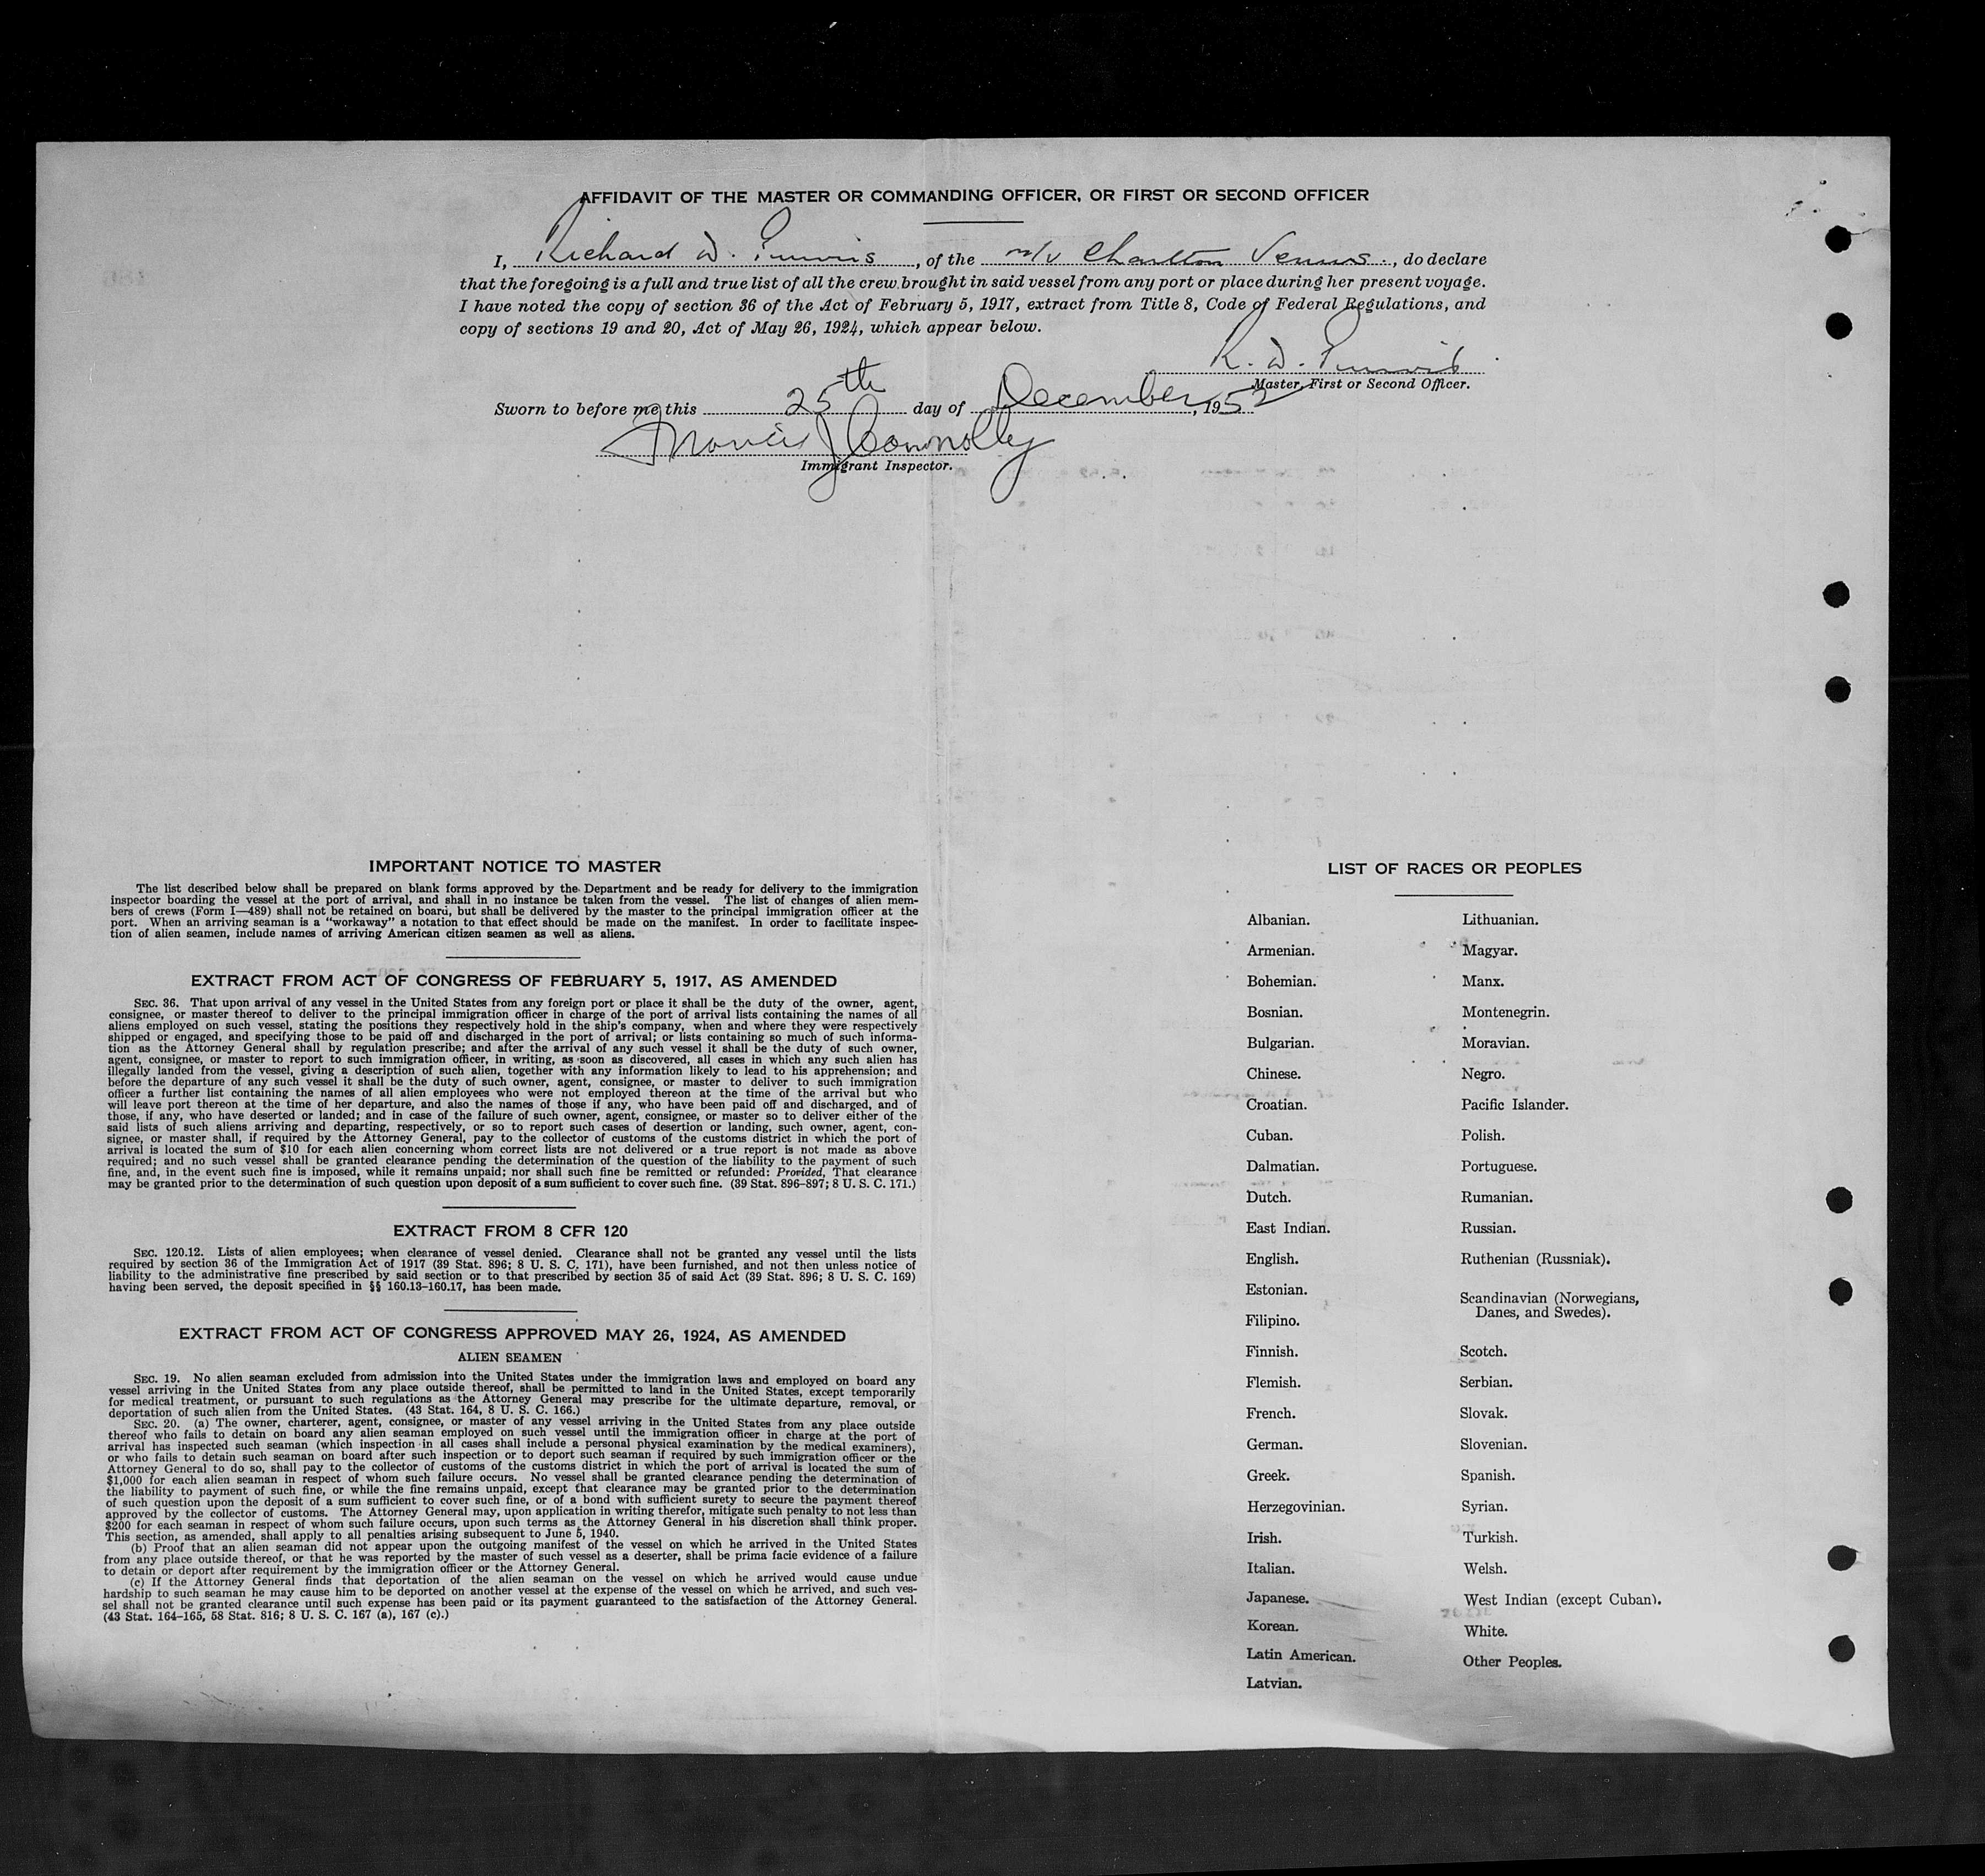 AFFIDAVIT OF THE MASTER OR COMMANDING OFFICER, OR FIRST OR SECOND OFFICER
I, Richard D. , of the m/v Charlton Venus. , do declare
that the foregoing is a full and true list of all the crew brought in said vessel from any port or place during her present voyage.
I have noted the copy of section 36 of the Act of February 5, 1917, extract from Title 8, Code of Federal Regulations, and
copy of sections 19 and 20, Act of May 26, 1924, which appear below.
R. D.
Master, First or Second Officer.
Sworn to before me this 25th day of December, 1952
Francis J Connolly
Immigrant Inspector.
IMPORTANT NOTICE TO MASTER
The list described below shall be prepared on blank forms approved by the Department and be ready for delivery to the immigration
inspector boarding the vessel at the port of arrival, and shall in no instance be taken from the vessel. The list of changes of alien mem-
bers of crews (Form I—489) shall not be retained on board, but shall be delivered by the master to the principal immigration officer at the
port. When an arriving seaman is a "workaway" a notation to that effect should be made on the manifest. In order to facilitate inspec-
tion of alien seamen, include names of arriving American citizen seamen as well as aliens.
EXTRACT FROM ACT OF CONGRESS OF FEBRUARY 5, 1917, AS AMENDED
SEC. 36. That upon arrival of any vessel in the United States from any foreign port or place it shall be the duty of the owner, agent,
consignee, or master thereof to deliver to the principal immigration officer in charge of the port of arrival lists containing the names of all
aliens employed on such vessel, stating the positions they respectively hold in the ship's company, when and where they were respectively
shipped or engaged, and specifying those to be paid off and discharged in the port of arrival; or lists containing so much of such informa-
tion as the Attorney General shall by regulation prescribe; and after the arrival of any such vessel it shall be the duty of such owner,
agent, consignee, or master to report to such immigration officer, in writing, as soon as discovered, all cases in which any such alien has
illegally landed from the vessel, giving a description of such alien, together with any information likely to lead to his apprehension; and
before the departure of any such vessel it shall be the duty of such owner, agent, consignee, or master to deliver to such immigration
officer a further list containing the names of all alien employees who were not employed thereon at the time of the arrival but who
will leave port thereon at the time of her departure, and also the names of those if any, who have been paid off and discharged, and of
those, if any, who have deserted or landed; and in case of the failure of such owner, agent, consignee, or master so to deliver either of the
said lists of such aliens arriving and departing, respectively, or so to report such cases of desertion or landing, such owner, agent, con-
signee, or master shall, if required by the Attorney General, pay to the collector of customs of the customs district in which the port of
arrival is located the sum of $10 for each alien concerning whom correct lists are not delivered or a true report is not made as above
required; and no such vessel shall be granted clearance pending the determination of the question of the liability to the payment of such
fine, and, in the event such fine is imposed, while it remains unpaid; nor shall such fine be remitted or refunded: Provided, That clearance
may be granted prior to the determination of such question upon deposit of a sum sufficient to cover such fine. (39 Stat. 896–897; 8 U. S. C. 171.)
EXTRACT FROM 8 CFR 120
SEC. 120.12. Lists of alien employees; when clearance of vessel denied. Clearance shall not be granted any vessel until the lists
required by section 36 of the Immigration Act of 1917 (39 Stat. 896; 8 U. S. C. 171), have been furnished, and not then unless notice of
liability to the administrative fine prescribed by said section or to that prescribed by section 35 of said Act (39 Stat. 896; 8 U. S. C. 169)
having been served, the deposit specified in §§ 160.13–160.17, has been made.
EXTRACT FROM ACT OF CONGRESS APPROVED MAY 26, 1924, AS AMENDED
ALIEN SEAMEN
SEC. 19. No alien seaman excluded from admission into the United States under the immigration laws and employed on board any
vessel arriving in the United States from any place outside thereof, shall be permitted to land in the United States, except temporarily
for medical treatment, or pursuant to such regulations as the Attorney General may prescribe for the ultimate departure, removal, or
deportation of such alien from the United States. (43 Stat. 164, 8 U. S. C. 166.)
SEC. 20. (a) The owner, charterer, agent, consignee, or master of any vessel arriving in the United States from any place outside
thereof who fails to detain on board any alien seaman employed on such vessel until the immigration officer in charge at the port of
arrival has inspected such seaman (which inspection in all cases shall include a personal physical examination by the medical examiners),
or who fails to detain such seaman on board after such inspection or to deport such seaman if required by such immigration officer or the
Attorney General to do so, shall pay to the collector of customs of the customs district in which the port of arrival is located the sum of
$1,000 for each alien seaman in respect of whom such failure occurs. No vessel shall be granted clearance pending the determination of
the liability to payment of such fine, or while the fine remains unpaid, except that clearance may be granted prior to the determination
of such question upon the deposit of a sum sufficient to cover such fine, or of a bond with sufficient surety to secure the payment thereof
approved by the collector of customs. The Attorney General may, upon application in writing therefor, mitigate such penalty to not less than
$200 for each seaman in respect of whom such failure occurs, upon such terms as the Attorney General in his discretion shall think proper.
This section, as amended, shall apply to all penalties arising subsequent to June 5, 1940.
(b) Proof that an alien seaman did not appear upon the outgoing manifest of the vessel on which he arrived in the United States
from any place outside thereof, or that he was reported by the master of such vessel as a deserter, shall be prima facie evidence of a failure
to detain or deport after requirement by the immigration officer or the Attorney General.
(c) If the Attorney General finds that deportation of the alien seaman on the vessel on which he arrived would cause undue
hardship to such seaman he may cause him to be deported on another vessel at the expense of the vessel on which he arrived, and such ves-
sel shall not be granted clearance until such expense has been paid or its payment guaranteed to the satisfaction of the Attorney General.
(43 Stat. 164–165, 58 Stat. 816; 8 U. S. C. 167 (a), 167 (c).)
LIST OF RACES OR PEOPLES
Albanian.
Armenian.
Bohemian.
Bosnian.
Bulgarian.
Chinese.
Croatian.
Cuban.
Dalmatian.
Dutch.
East Indian.
English.
Estonian.
Filipino.
Finnish.
Flemish.
French.
German.
Greek.
Herzegovinian.
Irish.
Italian.
Japanese.
Korean.
Latin American.
Latvian.
Lithuanian.
Magyar.
Manx.
Montenegrin.
Moravian.
Negro.
Pacific Islander.
Polish.
Portuguese.
Rumanian.
Russian.
Ruthenian (Russniak).
Scandinavian (Norwegians,
Danes, and Swedes).
Scotch.
Serbian.
Slovak.
Slovenian.
Spanish.
Syrian.
Turkish.
Welsh.
West Indian (except Cuban).
White.
Other Peoples.